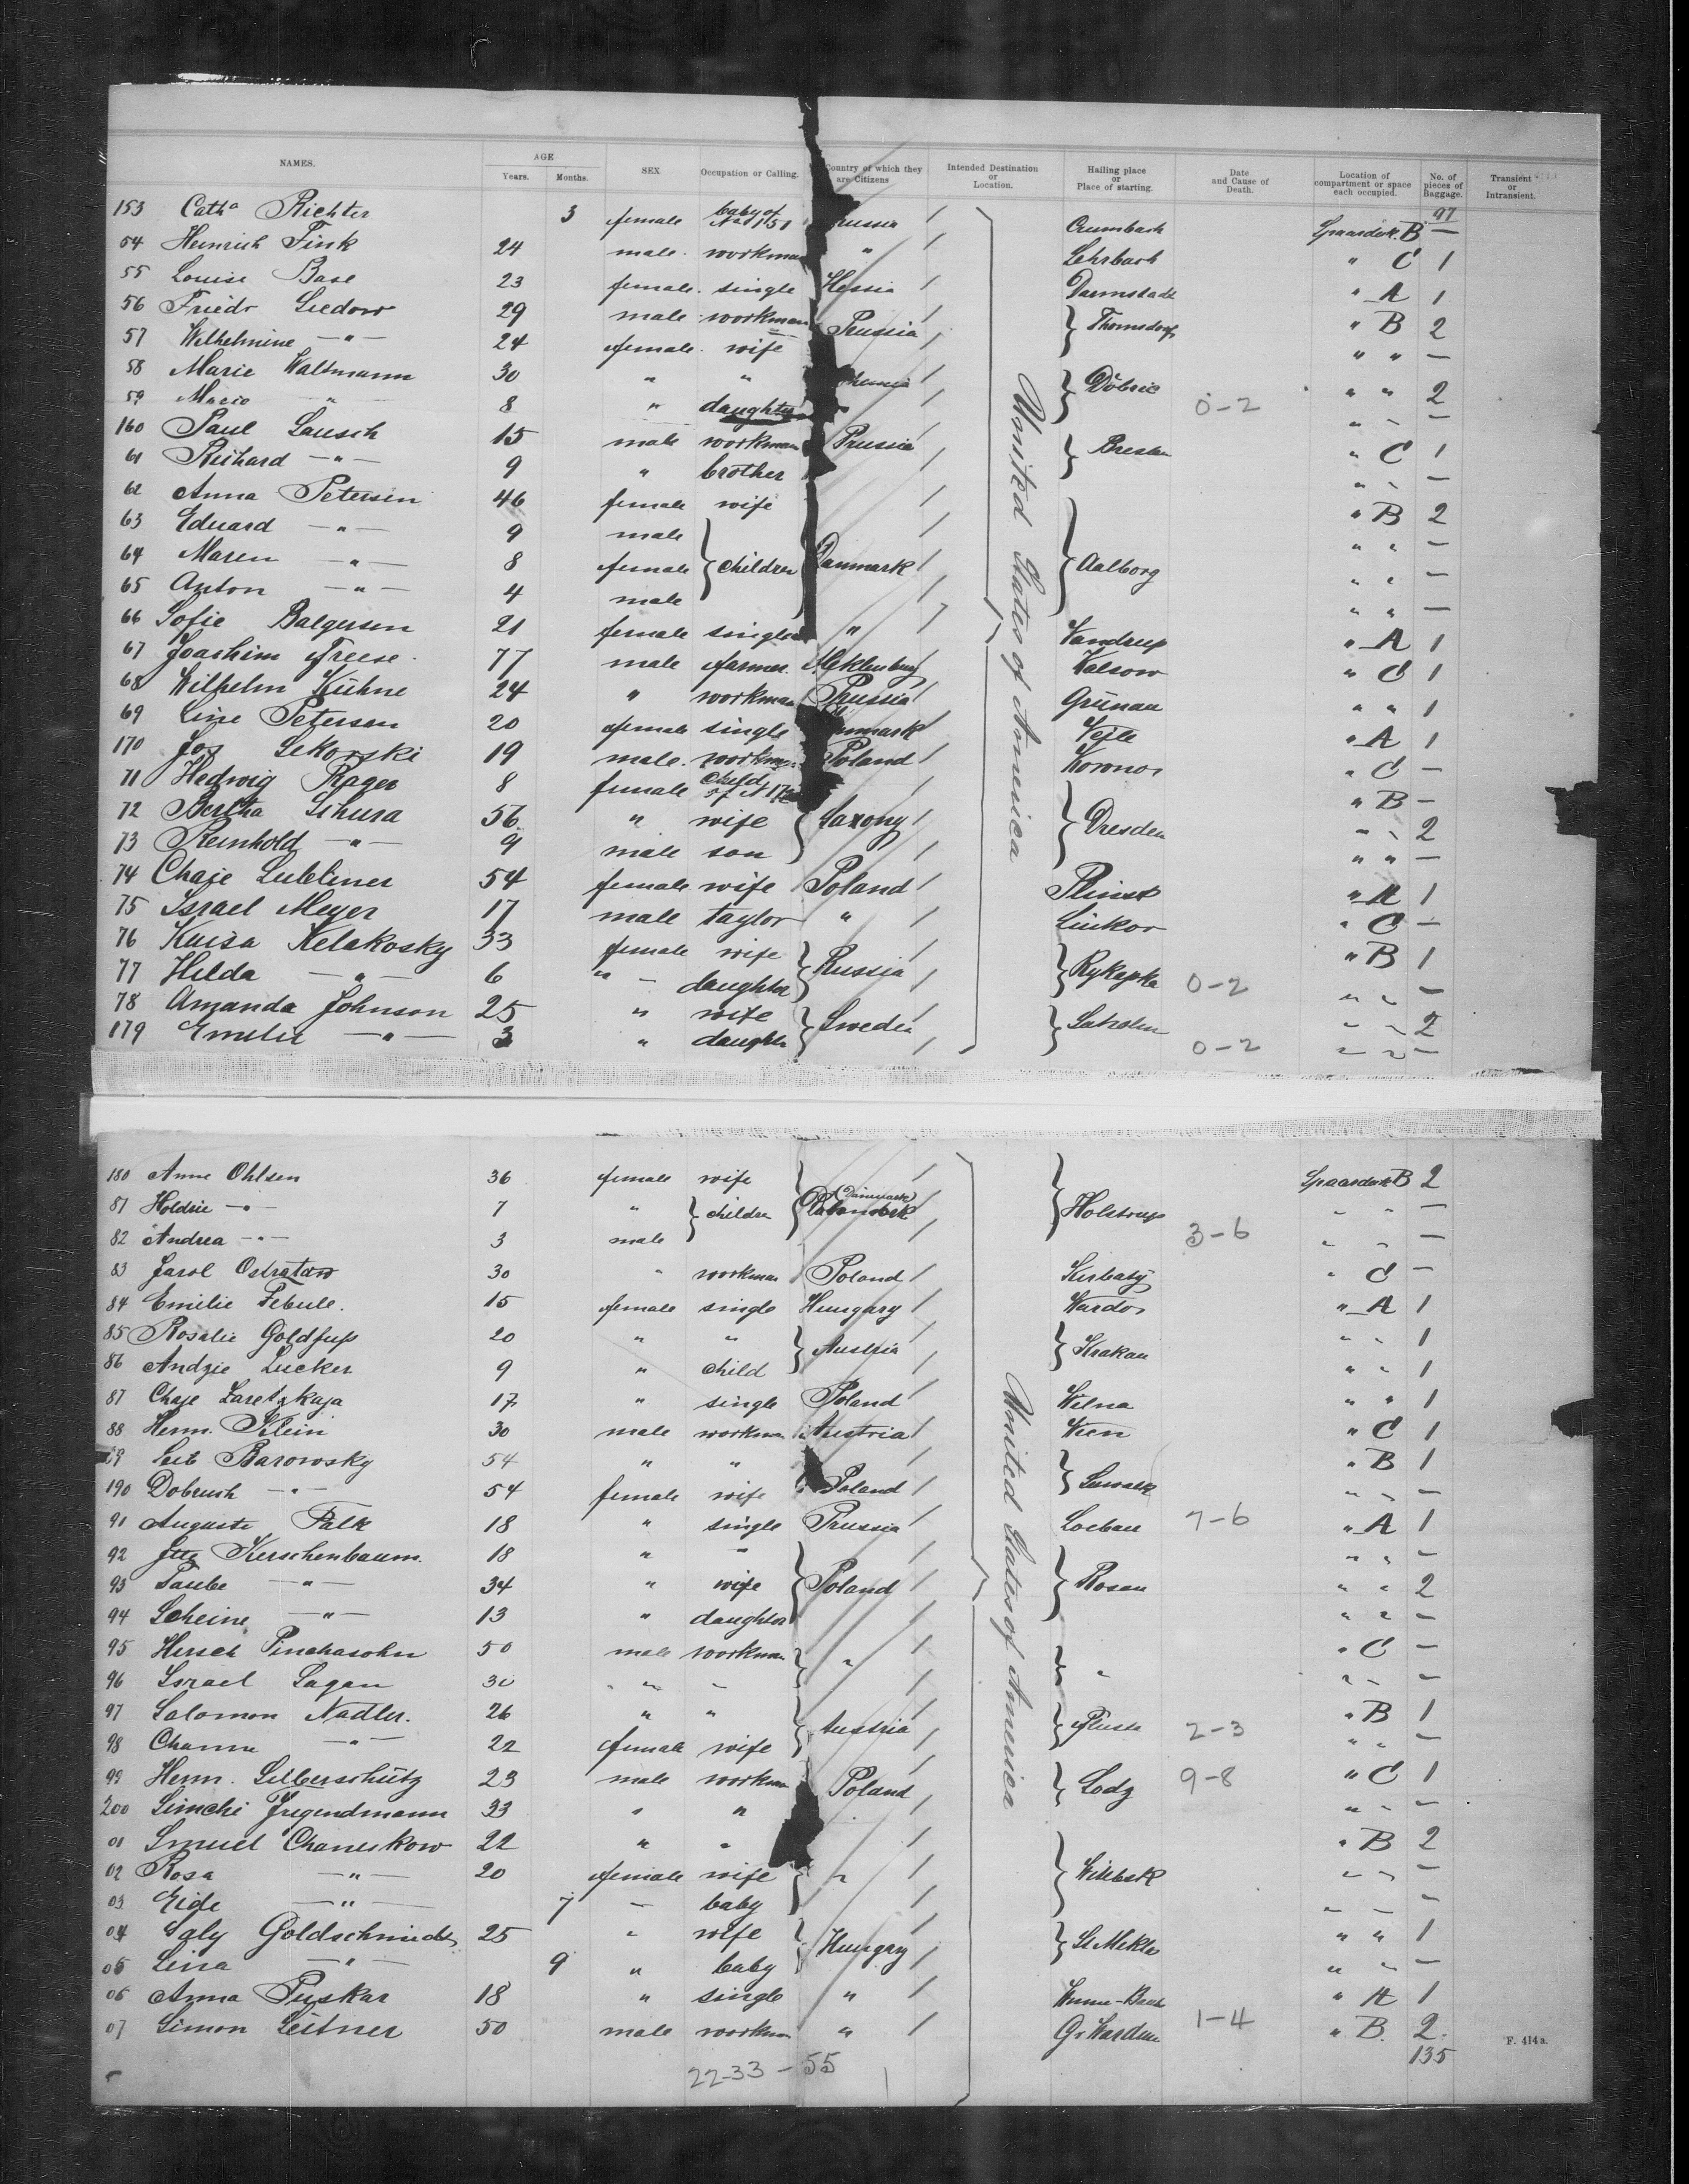 NAMES. AGE Years. Months. SEX Occupation or Calling. Country of which they are Citizens Intended Destination or Location. Hailing place or Place of starting. Date and Cause of Death. Location of compartment or space each occupied. No. of pieces of Baggage. Transient or Intransient.
97
153 Catha Richter 3 female baby of No 151 Prussia Crumbach B —
54 Heinrich Fink 24 male workman " Lehrbach " C 1
55 Louise Base 23 female single Hessia Darmstadt " A 1
56 Friedr Liedow 29 male workman Prussia Thomsdorf " B 2
57 Wilhelmine —"— 24 female wife " " —
58 Marie Waltmann 30 " " Döbric " " 2
59 Marie " 8 " daughter 0-2 " " —
160 Paul Lausch 15 male workman Prussia Breslau " C 1
61 Richard —"— 9 " brother " " —
62 Anna Petersen 46 female wife Danmark Aalborg " B 2
63 Eduard —"— 9 male children " " —
64 Maren —"— 8 female " " —
65 Anton —"— 4 male " " —
66 Sofie Balgersen 21 female single " Vandrup " A 1
67 Joachim Freese 77 male farmer Meklenburg Walsow " C 1
68 Wilhelm Kühne 24 " workman Prussia Grünau " " 1
69 Line Petersen 20 female single Danmark Vejle " A 1
170 Jos Sekorski 19 male workman Poland Kowno " C —
71 Hedwig Rager 8 female child of N 172 Saxony Dresden " B —
72 Bertha Schura 56 " wife " " 2
73 Reinhold —"— 9 male son " " —
74 Chaje Lubliner 54 female wife Poland Plinsk " A 1
75 Israel Meyer 17 male taylor " Linkor " C —
76 Kaisa Kelakosky 33 female wife Russia Rykapka " B 1
77 Hilda —"— 6 " — daughter 0-2 " " —
78 Amanda Johnson 25 " wife Sweden Laholm " " 2
179 Emilie —"— 3 " daughter 0-2 " " —
United States of America
180 Anne Ohlsen 36 female wife (Danmark) Holstrup B 2
81 Holdrie —"— 7 " children " " —
82 Andrea —"— 3 male 3-6 " " —
83 Jarol Ostratow 30 " workman Poland Kirbaty " C —
84 Emilie Febule. 15 female single Hungary Wardos " A 1
85 Rosalie Goldfuss 20 " " Austria Krakau " " 1
86 Andzie Lucker 9 " child " " 1
87 Chaje Zaretzkaja 17 " single Poland Wilna " " 1
88 Herm. Klein 30 male workman Austria Wien " C 1
89 Leib Barowsky 54 " " Poland Suwalk " B 1
190 Dobrush —"— 54 female wife " " —
91 Auguste Falk 18 " single Prussia Loebau 7-6 " A 1
92 Jtte Kirschenbaum. 18 " " Poland Rosan " " —
93 Taube —"— 34 " wife " " 2
94 Scheine —"— 13 " daughter " " —
95 Hirsch Pinchasohn 50 male workman " " " C —
96 Israel Sagan 30 " " " " —
97 Salomon Nadler. 26 " " Austria 2-3 " B 1
98 Channe —"— 22 female wife " " —
99 Herm. Silberschütz 23 male workman Poland Lodz 9-8 " C 1
200 Simche Jrgendmann 33 " " " " —
01 Smuel Chaneskow 22 " " " Witebsk " B 2
02 Rosa —"— 20 female wife " " —
03 Eide —"— 7 — baby " " —
04 Saly Goldschmidt 25 " wife Hungary St Miklos " " 1
05 Lina —"— 9 " baby " " —
06 Anna Puskar 18 " single " " A 1
07 Simon Leitner 50 male workman " Gr. Wardein 1-4 " B. 2.
United States of America
135
22-33-55
F. 414a.